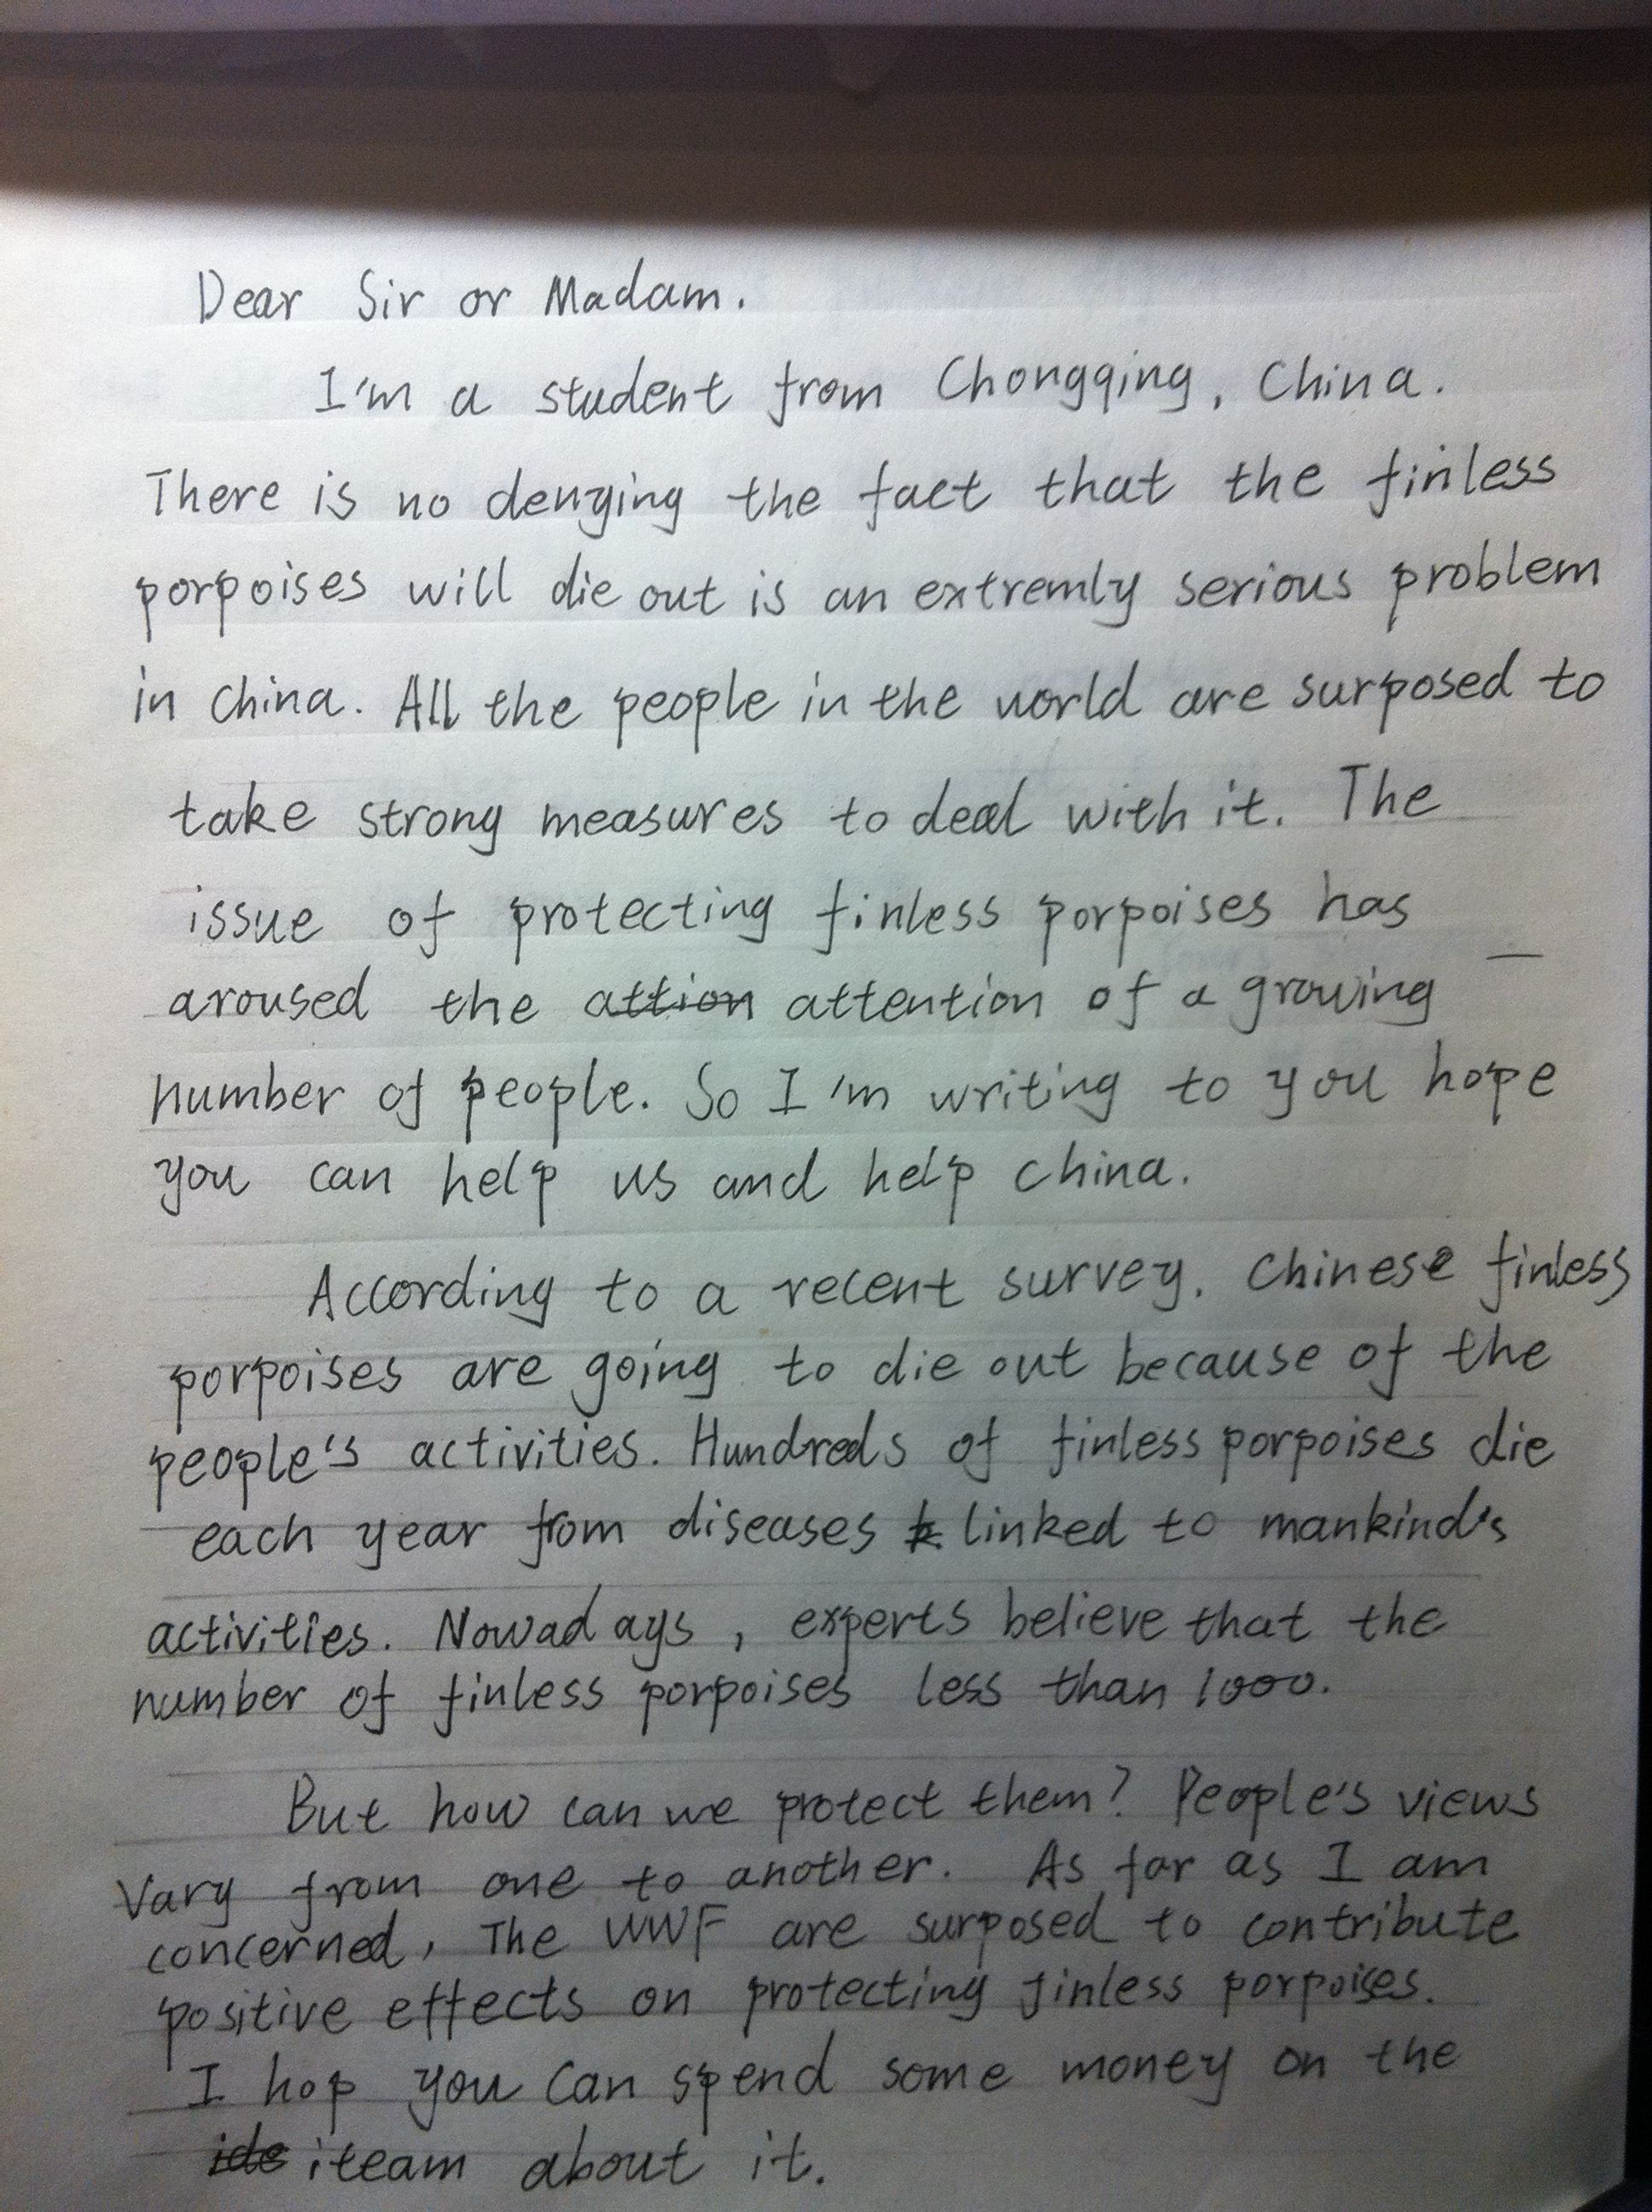 Dear Sir or Madam.
I'm a student from Chongqing, China.
There is no denying the fact that the finless
porpoises will die out is an extremly serious problem
in China. All the people in the world are surposed to
take strong measures to deal with it. The
issue of protecting finless porpoises has
aroused the attion attention of a growing
number of people. So I'm writing to you hope
you can help us and help China.
According to a recent survey. Chinese finless
porpoises are going to die out because of the
people's activities. Hundreds of finless porpoises die
each year from diseases linked to mankind's
activities. Nowadays, experts believe that the
number of finless porpoises less than 1000.
But how can we protect them? People's views
Vary from one to another. As far as I am
concerned, The WWF are surposed to contribute
positive effects on protecting finless porpoises.
I hop you can spend some money on the
ide iteam about it.